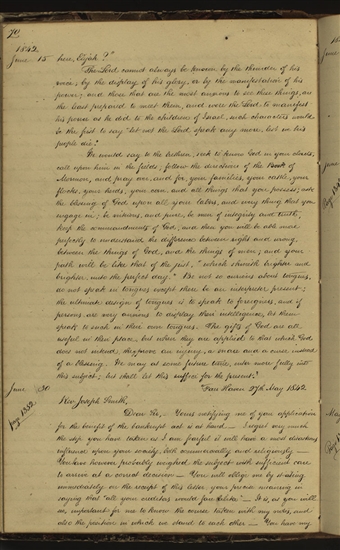 70
1842.
June 15 here, Elijah?"
The Lord cannot always be known by the thunder of his
voice, by the display of his glory, or by the manifestation of his
power; and those that are the most anxious to see these things, are
the least prepared to meet them, and were the Lord to manifest
his power as he did to the children of Israel, such characters would
be the first to say "let not the Lord speak any more, lest we his
people die."
We would say to the brethren, seek to know God in your closets,
call upon him in the fields; follow the directions of the Book of
Mormon, and pray over, and for, your families, your cattle, your
flocks, your herds, your corn and all things that you possess; ask
the blessing of God upon all your labors, and every thing that you
engage in; be virtuous, and pure, be men of integrity and truth,
keep the commandments of God, and then you will be able more
perfectly to understand the difference between right and wrong,
between the things of God, and the things of men; and your
path will be like that of the just, "which shineth brighter and
brighter, unto the perfect day." Be not so curious about tongues,
do not speak in tongues except there be an interpreter present;
the ultimate design of tongues is to speak to foreigners, and if
persons are very anxious to display their intelligence, let them
speak to such in their own tongues. The gifts of God are all
useful in their place, but when they are applied to that which God
does not intend, they prove an injury, a snare and a curse instead
of a blessing. We may at some future time, enter more fully into
this subject; but shall let this suffice for the present."
June
Fair Haven 27th May 1842
Rev. Joseph Smith,
page 1352.
Dear Sir,— Yours notifying me of your application
for the benefit of the bankrupt act is at hand — I regret very much
the step you have taken as I am fearful it will have a most disastrous
influence upon your society, both commercially and religiously —
You have however probably weighed the subject with sufficient care
to arrive at a correct decision — You will oblige me by stating
immediately on the receipt of this letter your precise meaning in
saying that "all your creditors would fare alike" — It is, as you will
see, important for me to know the course taken with my notes, and
also the position in which we stand to each other — You have my